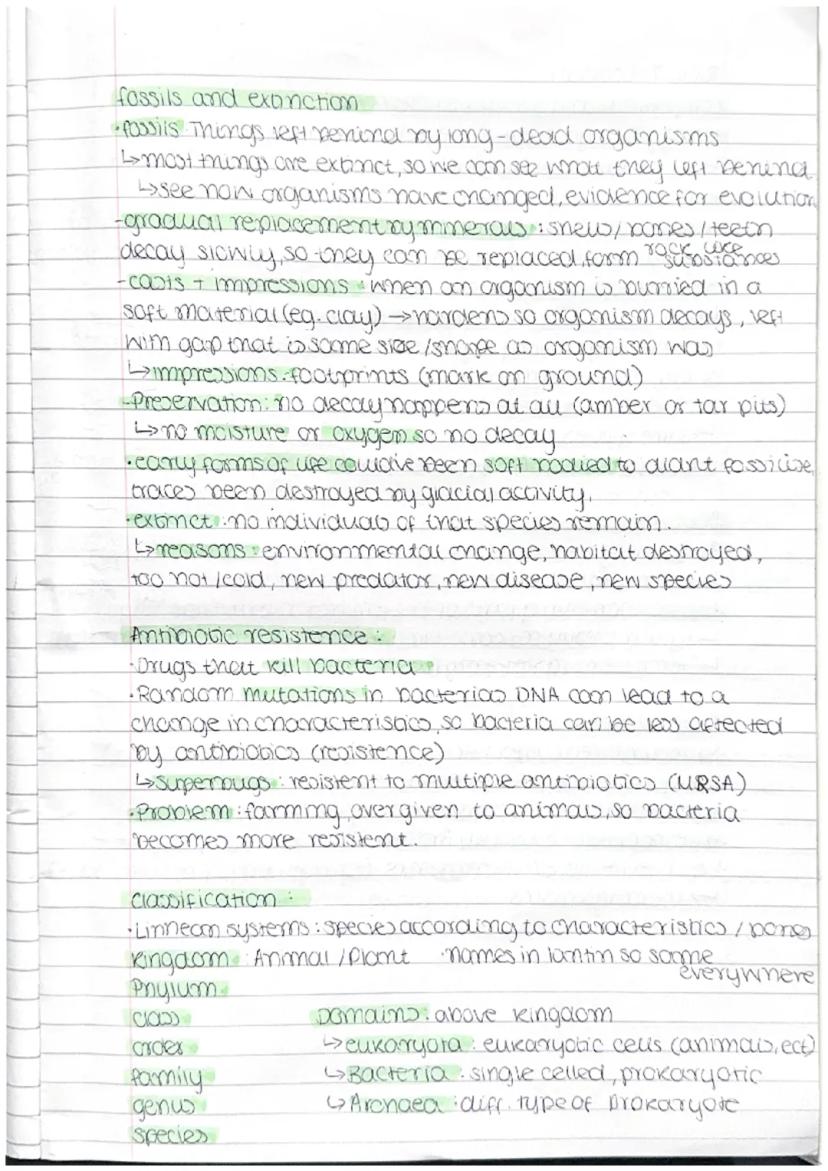 fossils and extinction
·fossils Things left behind by long-dead organisms
↳most things are extinct, so we can see what they left behind
↳see how organisms have changed, evidence for evolution
-gradual replacement by minerals: shells/bones/teeth
decay slowly, so they can be replaced, form rock like substances
-casts + impressions: when an organism is burried in a
soft material (eg. clay) → hardens so organism decays, left
with gap that is same size/shape as organism was
↳impressions: footprints (mark on ground)
-Preservation: no decay happens at all (amber or tar pits)
↳no moisture or oxygen so no decay
·early forms of life could've been soft bodied so didn't fossilise,
traces been destroyed by glacial activity.
·extinct: no individuals of that species remain.
↳reasons: environmental change, habitat destroyed,
too hot/cold, new predator, new disease, new species
Antibiotic resistence:
·Drugs that kill bacteria
·Random mutations in bacterias DNA can lead to a
change in characteristics, so bacteria can be less affected
by antibiotics (resistence)
↳superbugs: resistent to multiple antibiotics (MRSA)
·Problem: farming, over given to animals, so bacteria
becomes more resistent.
classification:
·Linnean systems: species according to characteristics / bones
Kingdom: Animal/Plant ·names in lantin so same everywhere
Phylum
class Domains: above kingdom
order ↳eukaryota: eukaryotic cells (animals, ect)
family ↳Bacteria: single celled, prokaryotic
genus ↳Archaea: diff. type of prokaryote
species